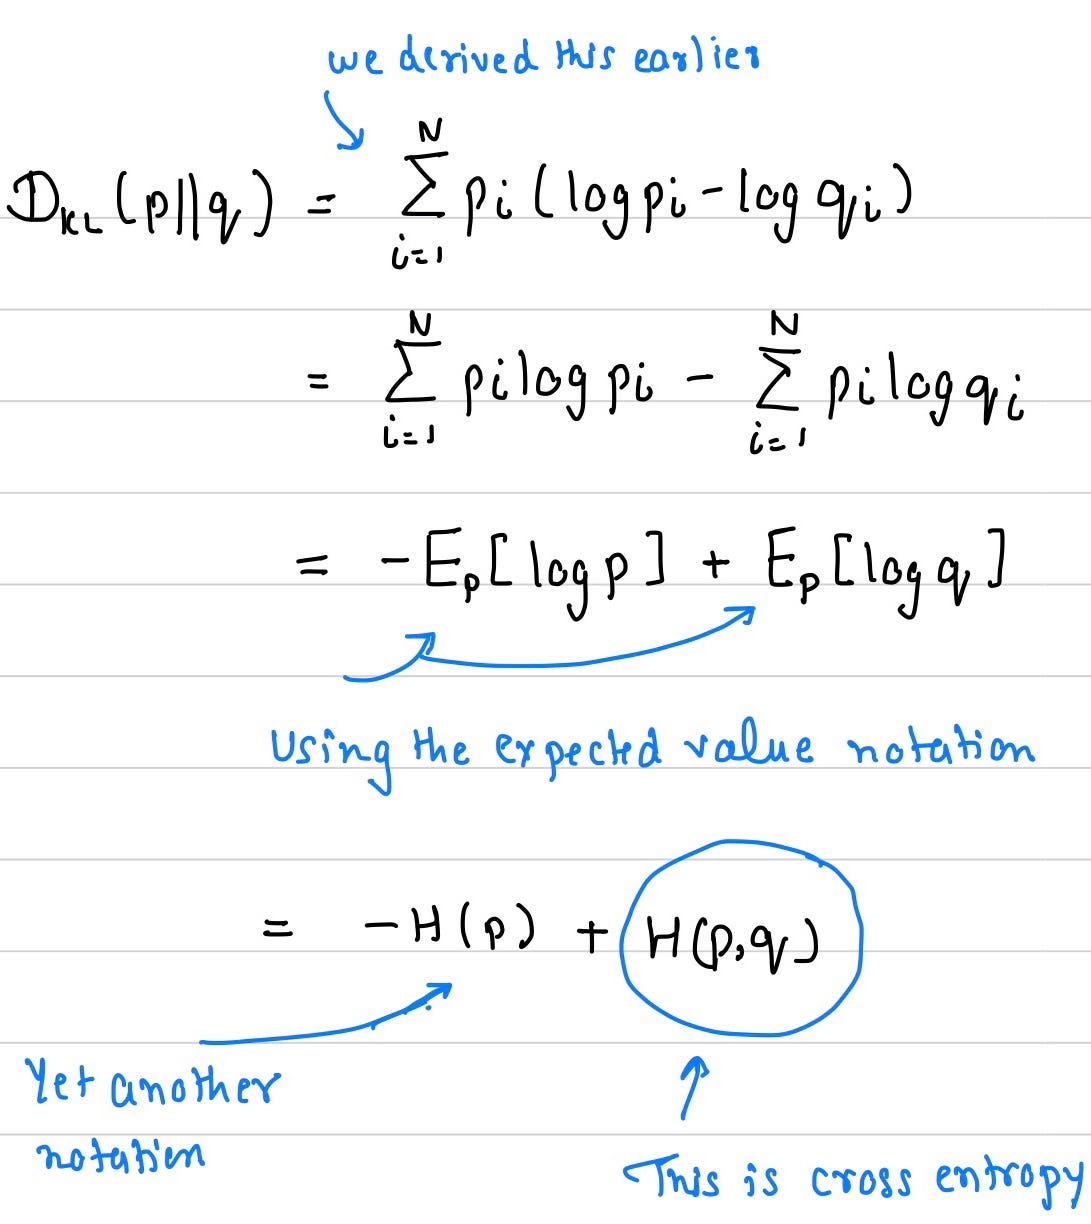 we derived this earlier
D_KL(p||q) = ∑_{i=1}^{N} pi(log pi - log qi)
= ∑_{i=1}^{N} pi log pi - ∑_{i=1}^{N} pi log qi
= -E_p[log p] + E_p[log q]
Using the expected value notation
= -H(p) + H(p,q)
Yet another
notation
This is cross entropy